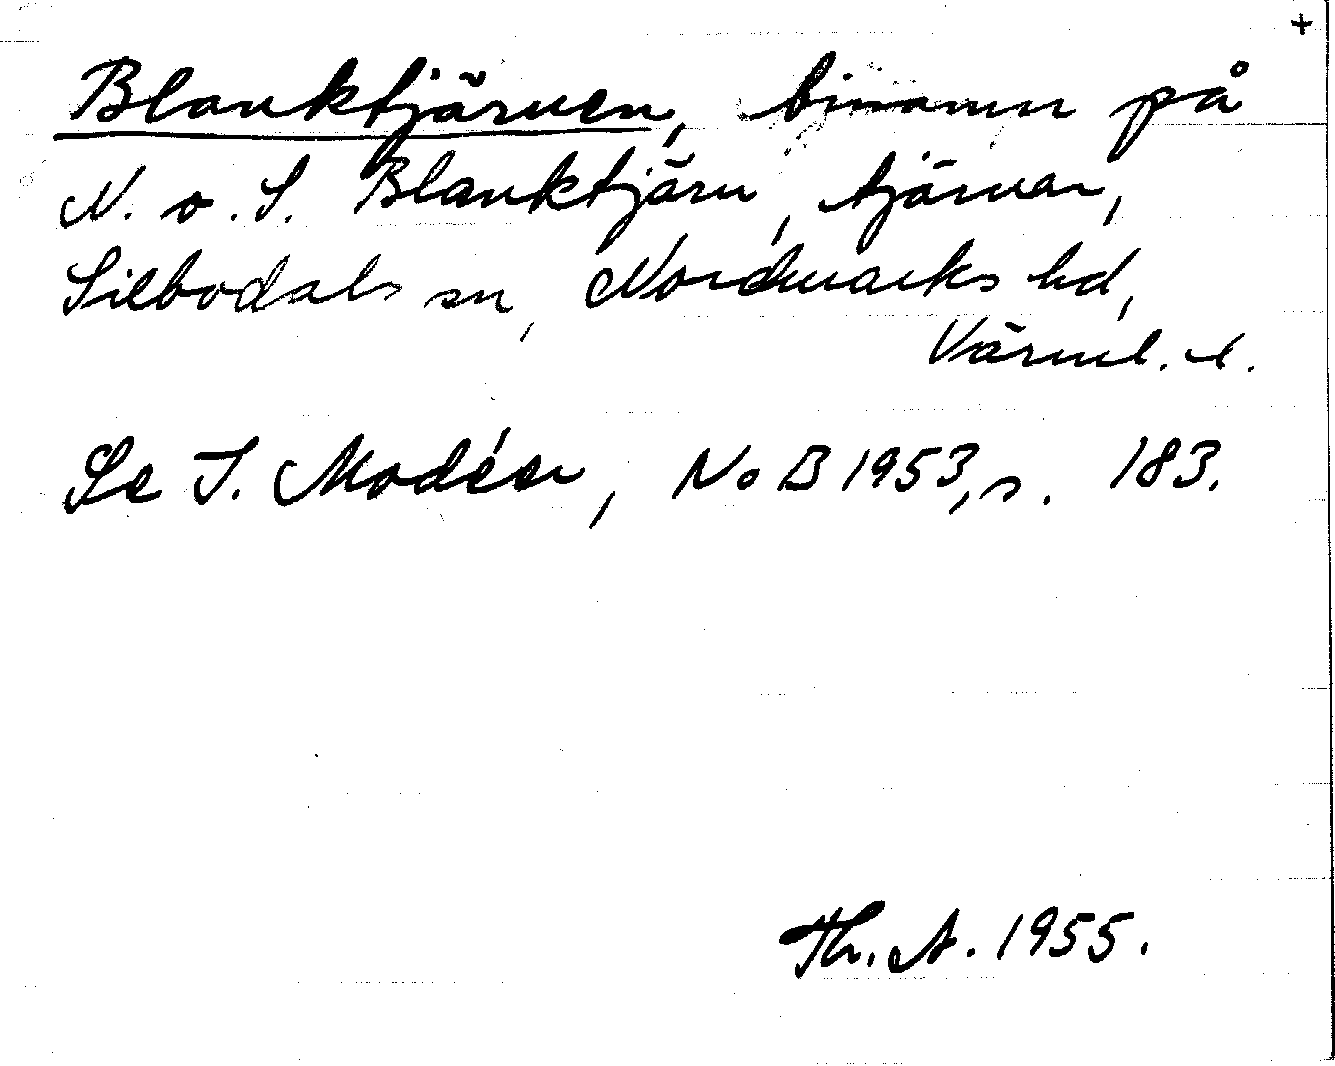 +
Blanktjärnen, binamn på
N. o. S. Blanktjärn, tjärnar,
Silbodals sn, Nordmarks hd,
Värml. l.
Se I. Modéer, NoB 1953, s. 183.
Th. A. 1955.